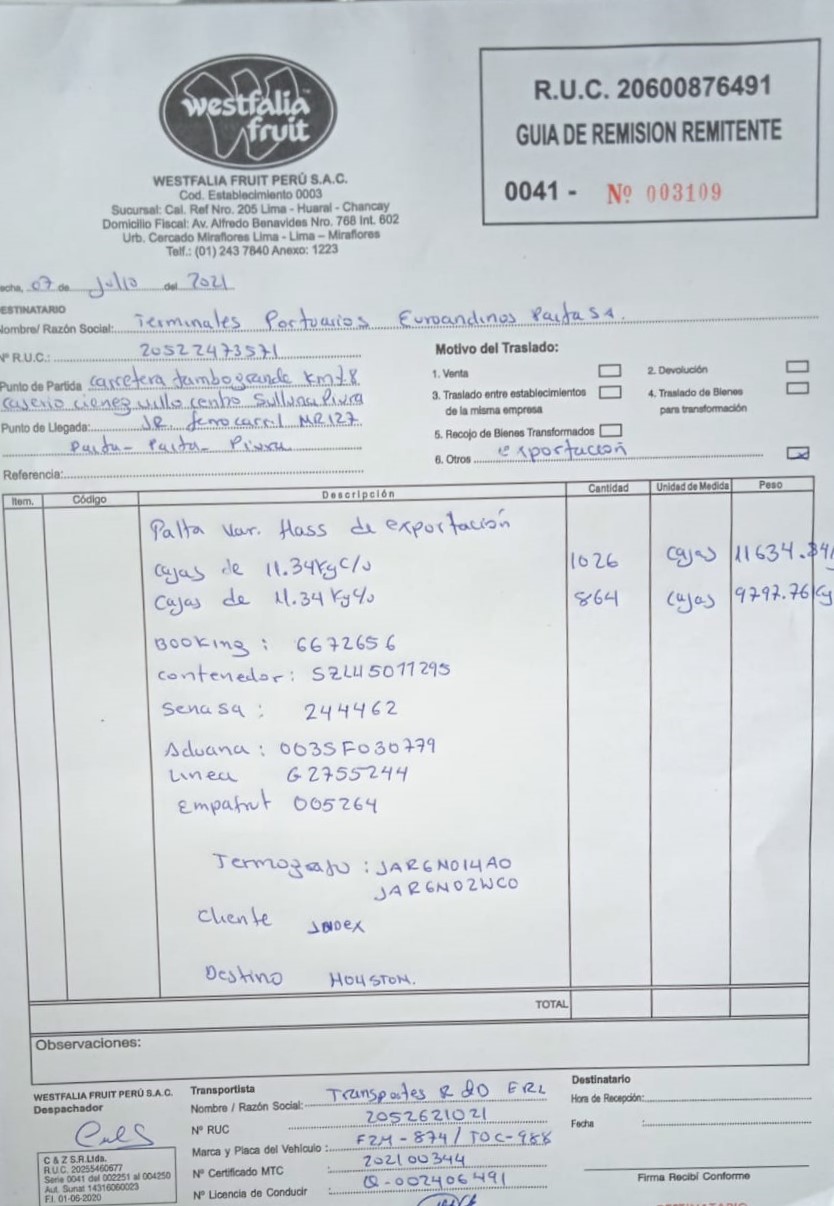 westfalia
fruit
WESTFALIA FRUIT PERÚ S.A.C.
Cod. Establecimiento 0003
Sucursal: Cal. Ref Nro. 205 Lima - Huaral - Chancay
Domicilio Fiscal: Av. Alfredo Benavides Nro. 768 Int. 602
Urb. Cercado Miraflores Lima - Lima – Miraflores
Telf.: (01) 243 7640 Anexo: 1223
R.U.C. 20600876491
GUIA DE REMISION REMITENTE
0041 - Nº 003109
echa, 07 de Julio del 2021
ESTINATARIO
Nombre/ Razón Social: Terminales Portuarios Euroandinos Paita SA.
Nº R.U.C.: 20522473571
Punto de Partida carretera tambogrande Km 7.8
caserio cieneguillo centro Sullana Piura
Punto de Llegada: JR. ferrocarril MR127
Paita - Paita - Piura
Referencia:
Motivo del Traslado:
1. Venta
2. Devolución
3. Traslado entre establecimientos
de la misma empresa
4. Traslado de Bienes
para transformación
5. Recojo de Bienes Transformados
6. Otros exportación
Item. Código Descripción Cantidad Unidad de Medida Peso
Palta Var. Hass de exportación
Cajas de 11.34Kg C/u 1026 cajas 11634.84
Cajas de 11.34 Kg c/u 864 cajas 9797.76 Kg
Booking : 6672656
contenedor : SZLU5011295
Senasa : 244462
Aduana : 003SF030779
Linea G2755244
Empafrut 005264
Termografo : JAR6N014A0
JAR6N02WC0
Cliente INDEX
Destino HOUSTON.
TOTAL
Observaciones:
WESTFALIA FRUIT PERÚ S.A.C.
Despachador
C & Z S.R.Ltda.
R.U.C. 20255460677
Serie 0041 del 002251 al 004250
Aut. Sunat 14316060023
F.I. 01-06-2020
Transportista
Nombre / Razón Social: Transportes R & O ERL
Nº RUC 2052621021
Marca y Placa del Vehículo : F2M - 874 / TOC-988
Nº Certificado MTC : 202100344
Nº Licencia de Conducir : Q-002406491
Destinatario
Hora de Recepción:
Fecha :
Firma Recibí Conforme
DESTINATARIO